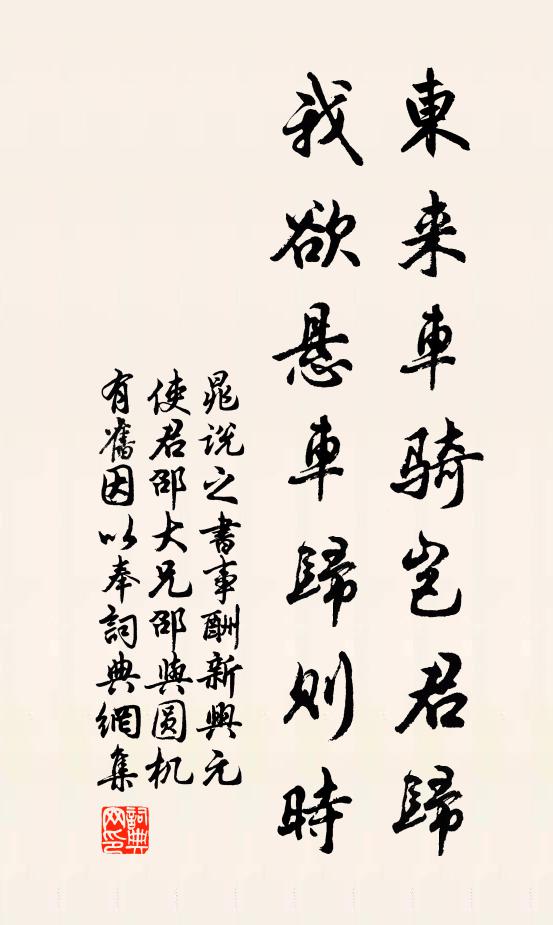 東来車騎岂君歸
我欲悬車歸則時
晁说之書事酬新興元
使君邵大兄邵與圓机
有舊因以奉詞典網集
詞典网印